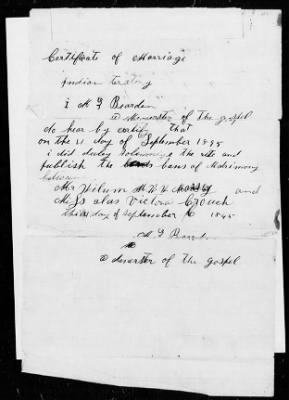 Certificate of Marriage
Indian Teritory
I M Y Bearden
a Minester of the gospel
do hear by certify that
on the 11 day of September 1895
i did duley Solomnize the rite and
publish the bans of Matrimony
between
Mr Wilum M and
Miss alas Victora Crouch
this day of September 1895
M Y
a Minester of the Gospel